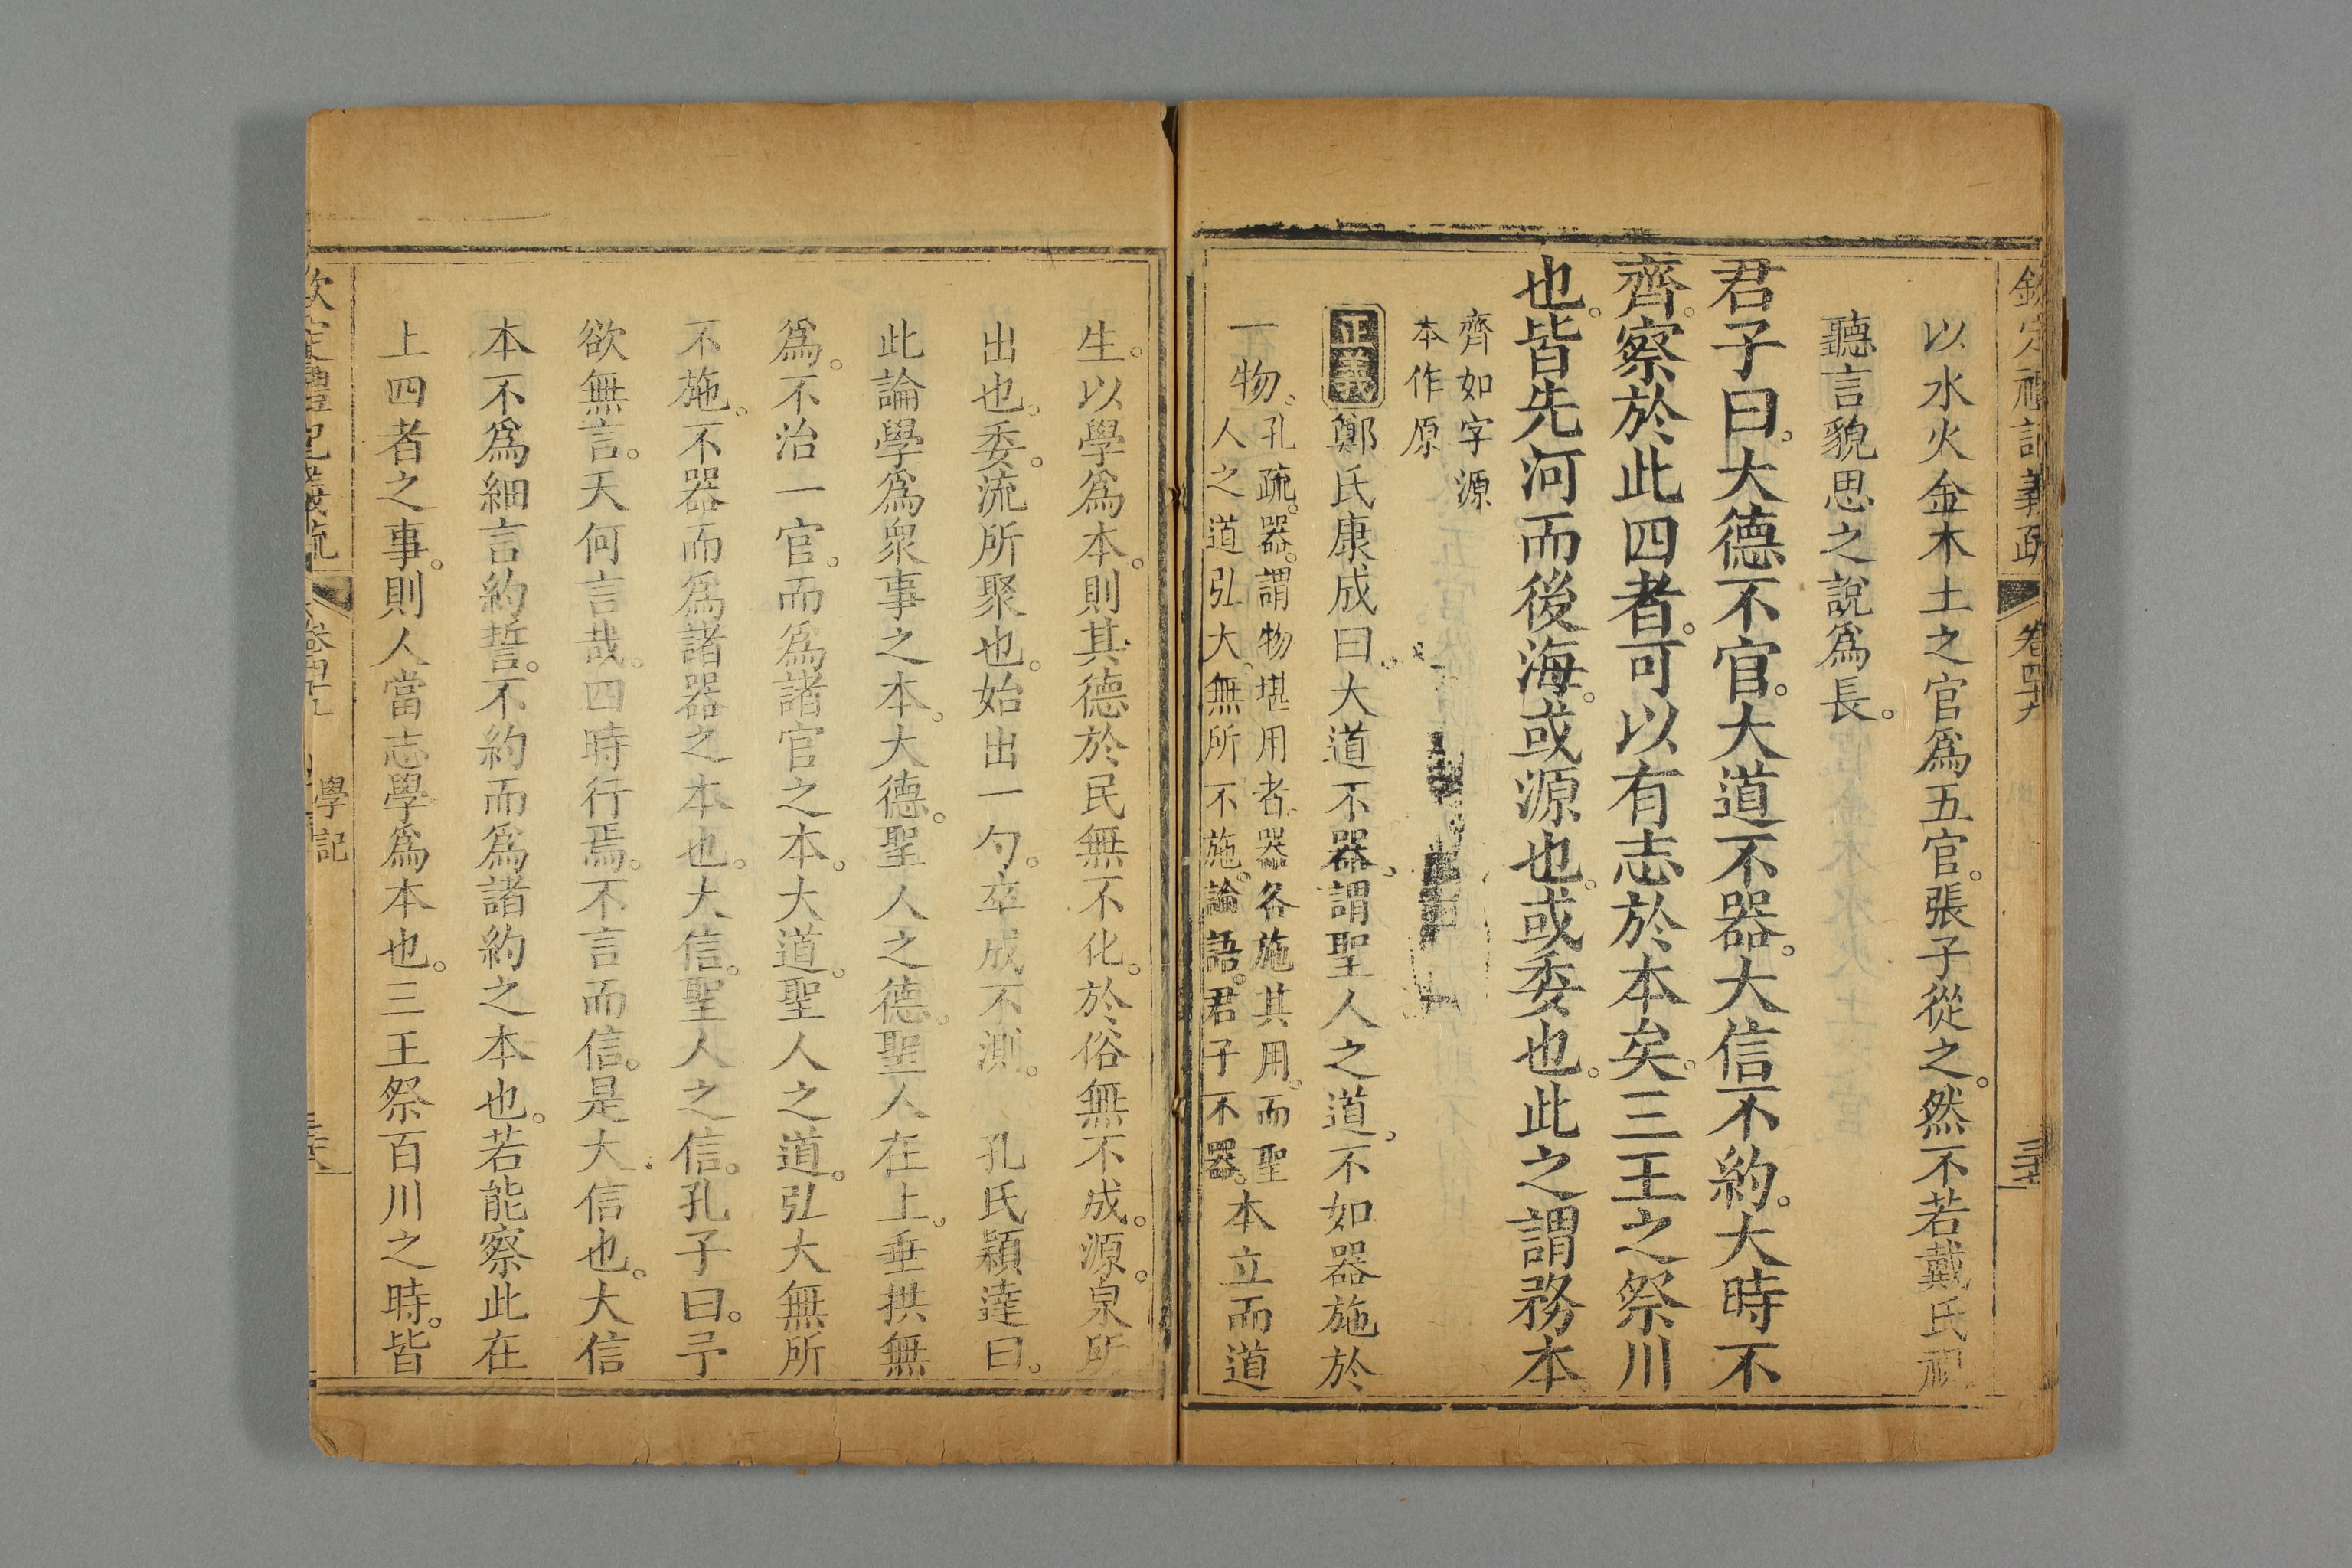 欽定禮記義疏 卷四十九 三十七
以水火金木土之官爲五官。張子從之。然不若戴氏視
聽言貌思之說爲長。
君子曰。大德不官。大道不器。大信不約。大時不
齊。察於此四者。可以有志於本矣。三王之祭川
也。皆先河而後海。或源也。或委也。此之謂務本
齊如字源
本作原
正義 鄭氏康成曰。大道不器。謂聖人之道。不如器施於
一物。孔疏。器。謂物堪用者。器各施其用。而聖
人之道弘大。無所不施。論語。君子不器。本立而道
生。以學爲本。則其德於民無不化。於俗無不成。源。泉所
出也。委。流所聚也。始出一勺。卒成不測。 孔氏穎達曰。
此論學爲衆事之本。大德。聖人之德。聖人在上。垂拱無
爲。不治一官。而爲諸官之本。大道。聖人之道。弘大無所
不施。不器而爲諸器之本也。大信。聖人之信。孔子曰。予
欲無言。天何言哉。四時行焉。不言而信。是大信也。大信
本不爲細言約誓。不約而爲諸約之本也。若能察此在
上四者之事。則人當志學爲本也。三王祭百川之時。皆
欽定禮記義疏 學記